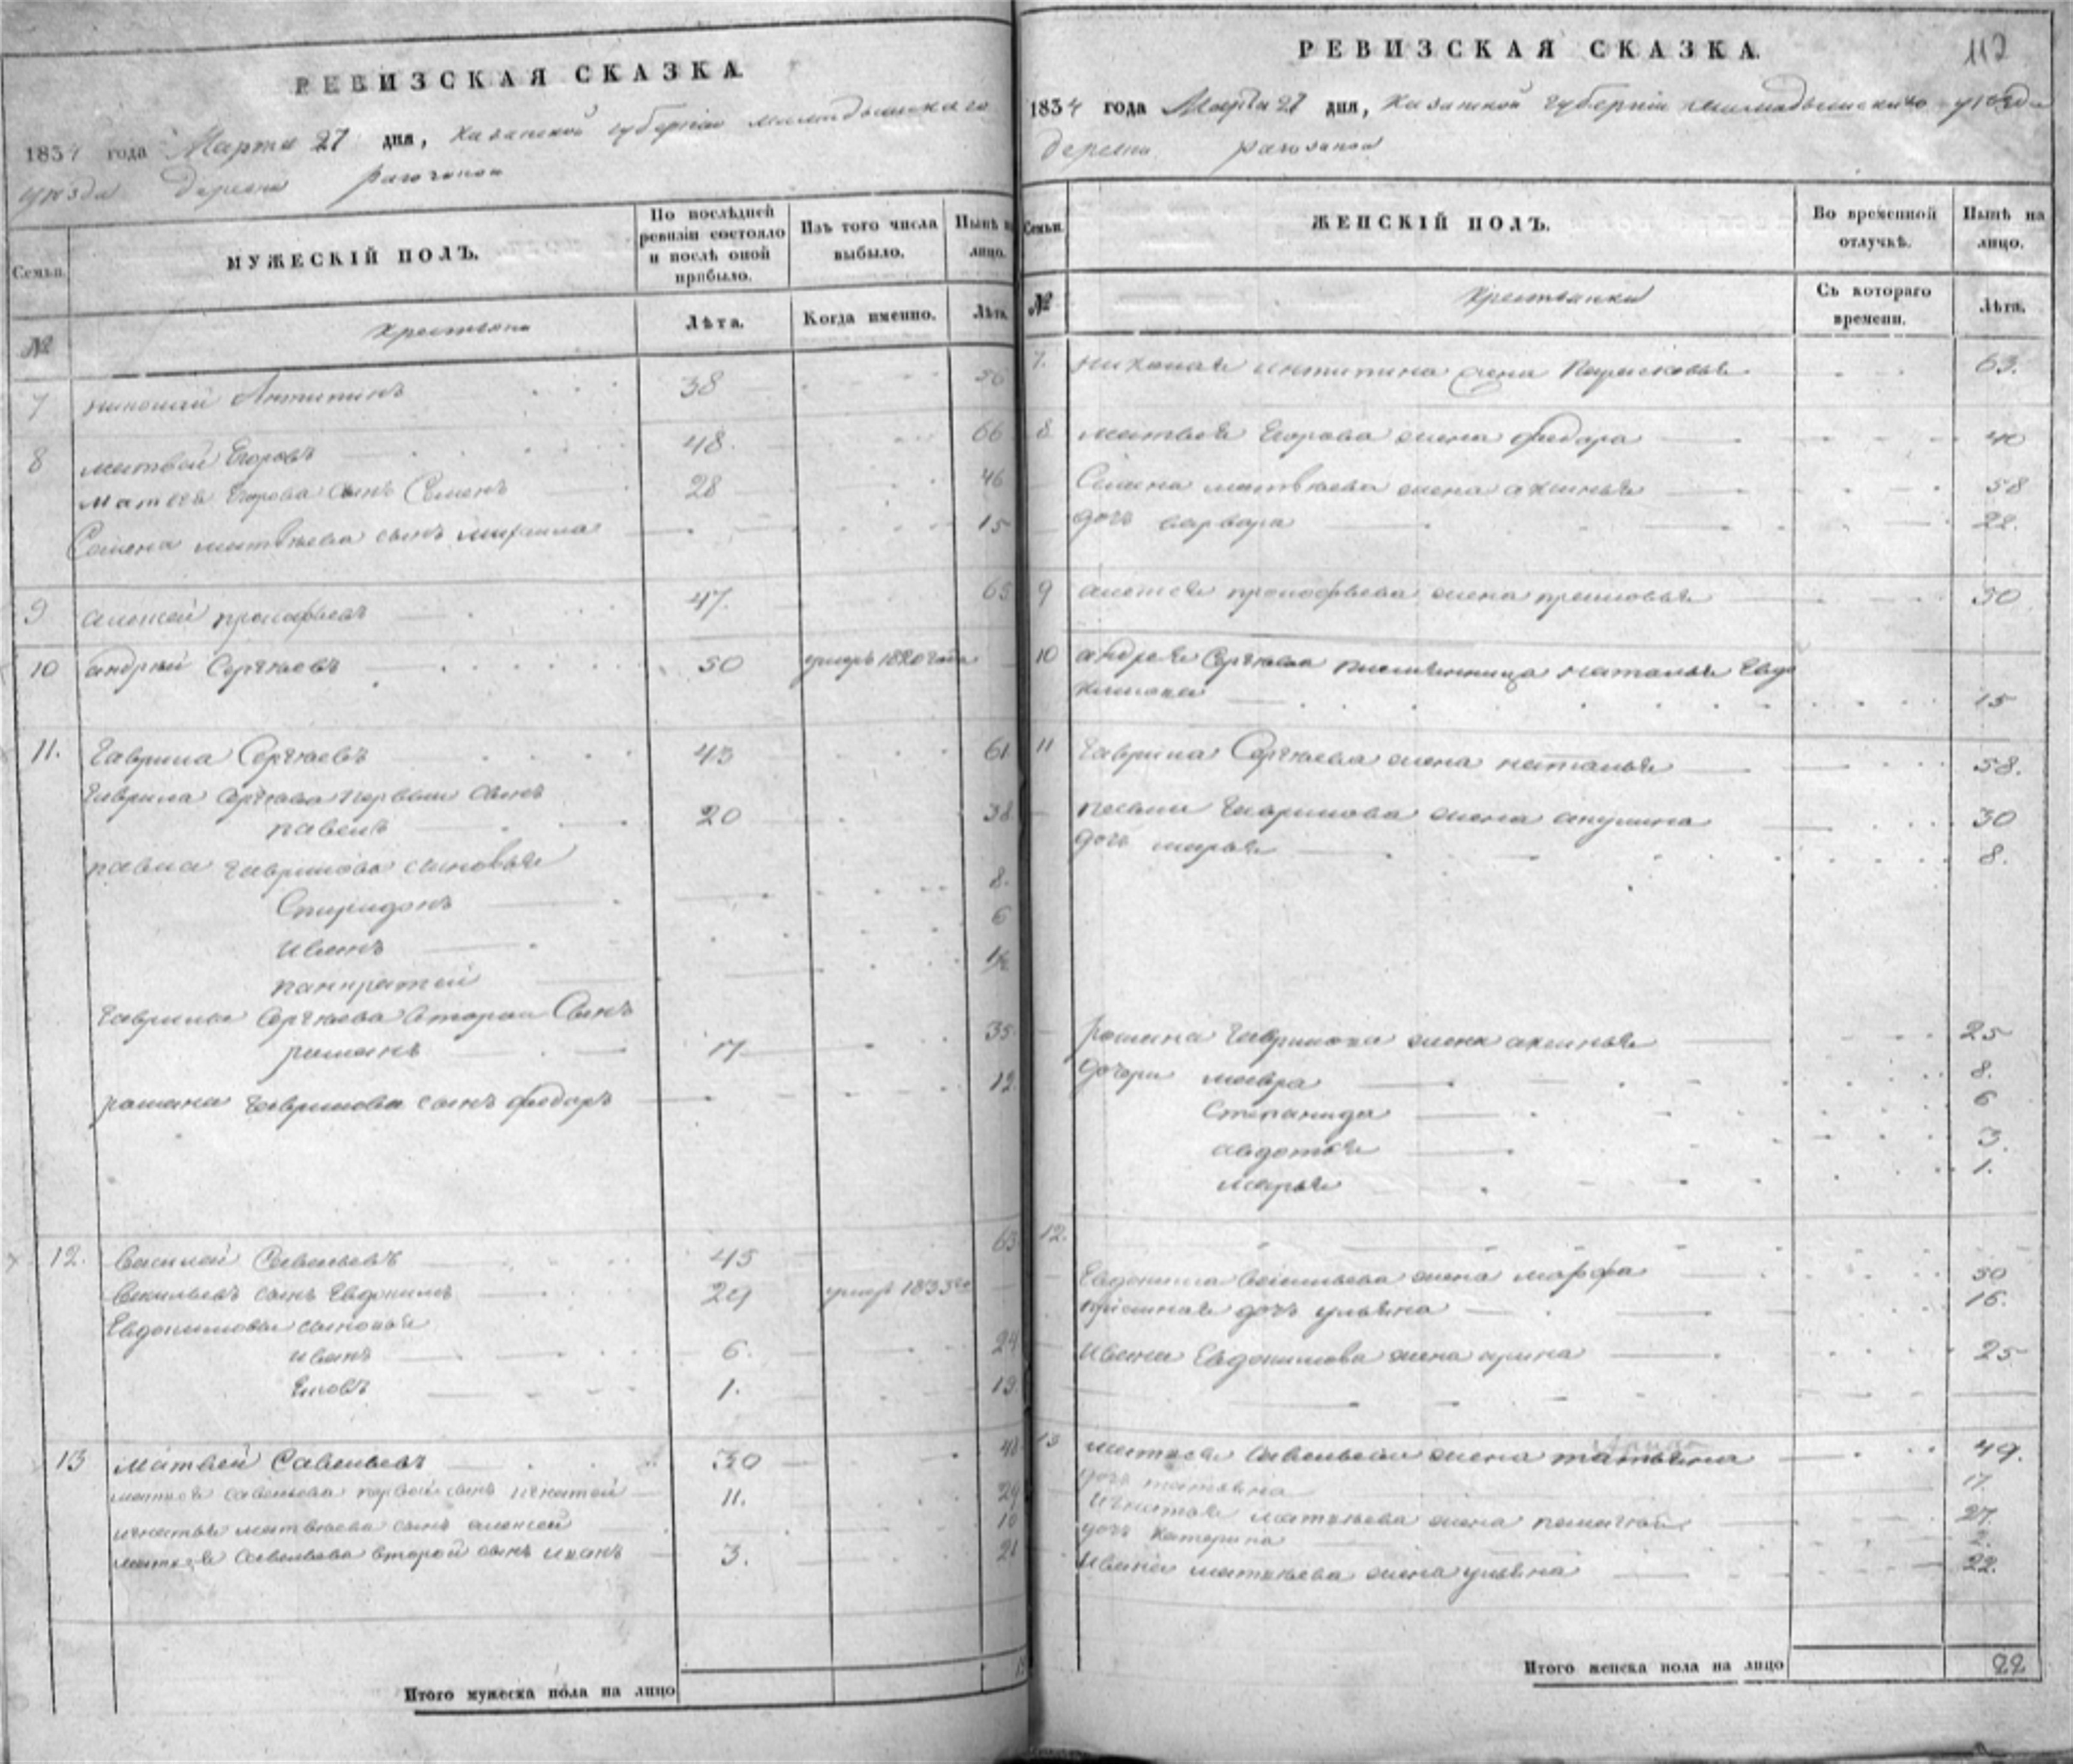 РЕВИЗСКАЯ СКАЗКА
1834 года Марта 27 дня, Казанской губернии мамадышскаго
уезда деревни рагозиной
Семьи.
МУЖЕСКІЙ ПОЛЪ.
По послѣдней ревизіи состояло и послѣ оной прибыло.
Изъ того числа выбыло.
Нынѣ на лицо.
№
крестьяне
Лѣта.
Когда именно.
Лѣта.
7 николай Антипинъ 38 56
8 матвей Егоровъ 48. 66
матвея Егорова сынъ Семенъ 28 46
Семена матвѣева сынъ 15
9 алексей прокофьевъ 47. 65
10 андрей Сергѣевъ 50 умеръ 1820 года
11. Гаврила Сергѣевъ 43 61
Гаврила Сергѣева первый сынъ
павелъ 20 38
павла гаврилова сыновья
Спиридонъ 8.
иванъ 6
панкратей 1/2
Гаврилы Сергѣева второй Сынъ
романъ 17 35
романа Гаврилова сынъ федоръ 12
12. василей Савельевъ 45 63
васильевъ сынъ Евдокимъ 29 умеръ 1833
Евдокимовы сыновья
иванъ 6. 24
1. 19
13 Матвей Савельевъ 30 48
матвея савельева первой сынъ игнатей 11. 29
игнатья матвѣева сынъ алексей 10
матвея Савельева второй сынъ иванъ 3. 21
Итого мужеска пола на лицо
РЕВИЗСКАЯ СКАЗКА.
112
1834 года Марта 27 дня, Казанской губерніи мамадышскаго уезда
деревни рагозиной
Семьи.
ЖЕНСКІЙ ПОЛЪ.
Во временной отлучкѣ.
Нынѣ на лицо.
№
крестьянки
Съ котораго времени.
Лѣта.
7. николая антипина жена Парасковья 63.
8 матвея Егорова жена федора 40
Семена матвѣева жена аксинья 58
дочь варвара 22.
9 алексея прокофьева жена 50
10 андрея Сергѣева племянница наталья Евдо
кимова 15
11 Гаврила Сергѣева жена наталья 58.
павла Гаврилова жена акулина 30
дочь марья 8.
романа Гаврилова жена аксинья 25
дочери мавра 8.
Степанида 6
авдотья 3.
марья 1.
12.
Евдокима васильева жена марфа 50
дочь ульяна 16.
ивана Евдокимова жена арина 25
13 матвея савельева жена татьяна 49.
дочь татьяна 17.
игнатья матвѣева жена пелагея 27.
дочь катерина 2.
ивана матвѣева жена ульяна 22.
Итого женска пола на лицо 22